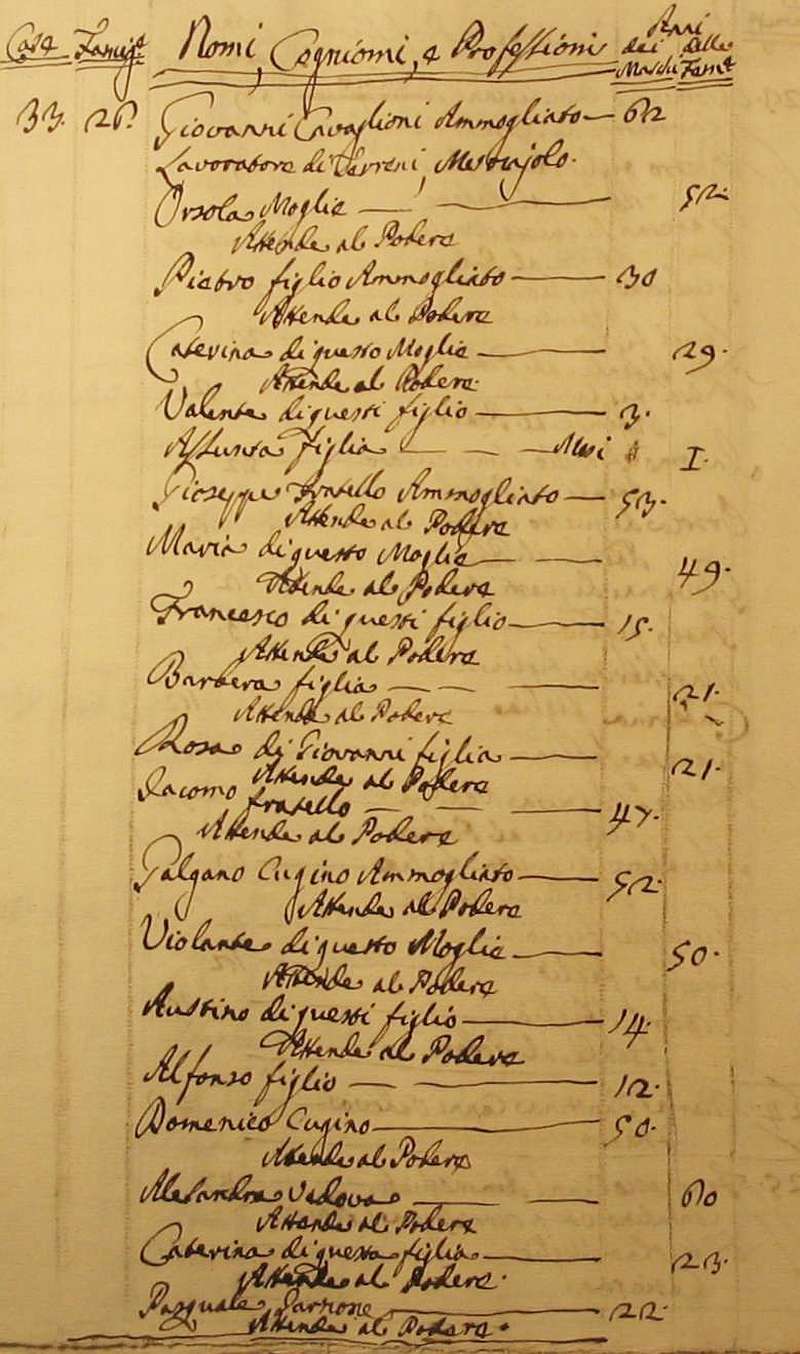 Case Famige Nomi, Cogniomi, e Professioni Anni dei Maschi delle Feme
33. 26. Giovanni Cavaglioni Ammogliato 62
Lavoratore di Terreni,
Orsola Moglie 52.
Attende al Podere
Pietro figlio Ammogliato 30
Attende al Podere
Caterina di questo Moglie 29.
Attende al Podere.
Valente di questi figlio 3.
Assunta figlia Mesi I.
Gioseppe Fratello Ammogliato 53.
Attende al Podere
Maria di questo Moglie 49.
Attende al Podere
Francesco di questi figlio 15.
Attende al Podere
Barbera figlia 21.
Attende al Podere
Rosa di Giovanni figlia 21.
Attende al Podere
Iacomo fratello 47.
Attende al Podere
Galgano Cugino Ammogliato 52.
Attende al Podere
Violante di questo Moglie 50.
Attende al Podere
Austino di questi figlio 14.
Attende al Podere
Alfonso figlio 12.
Domenico Cugino 50.
Attende al Podere
Alesandra Vedova 60
Attende al Podere
Caterina di questa figlia 23.
Attende al Podere.
Pasquale Garzone 22.
Attende al Podere.